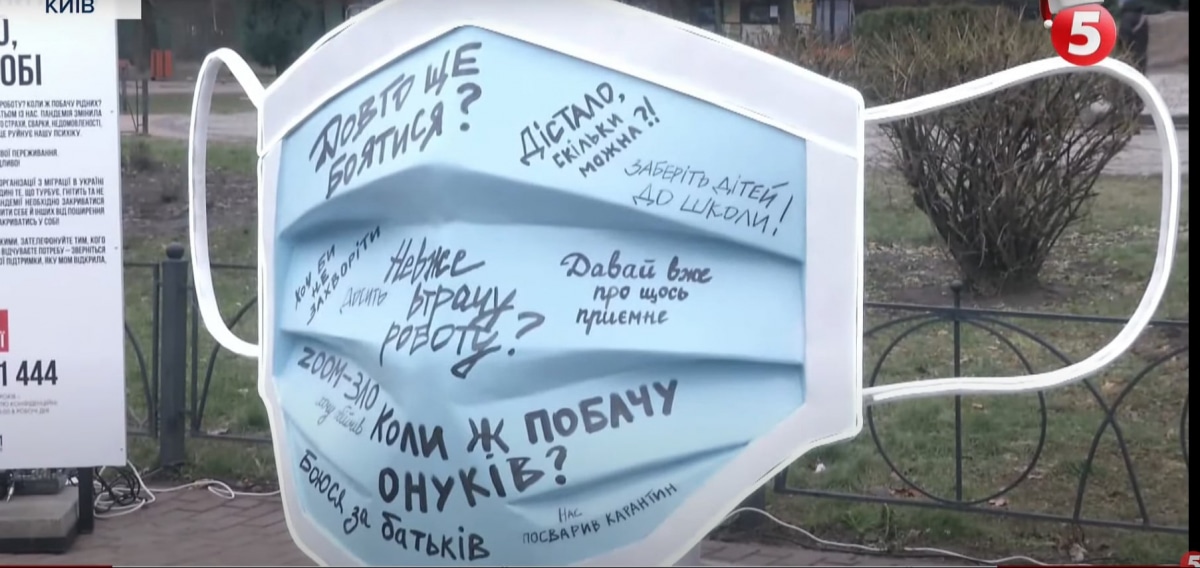 КИЇВ
5
ОБІ
РОБОТУ? КОЛИ Ж ПОБАЧУ РІДНИХ?
ІЗ НАС. ПАНДЕМІЯ ЗМІНИЛА
СТРАХИ, СВАРКИ, НЕДОМОВЛЕНОСТІ,
ЩЕ РУЙНУЄ НАШУ ПСИХІКУ.
ПЕРЕЖИВАННЯ.
ОРГАНІЗАЦІЇ З МІГРАЦІЇ В УКРАЇНІ
ТЕ, ЩО ТУРБУЄ, ГНІТИТЬ ТА НЕ
НЕОБХІДНО ЗАКРИВАТИСЯ
СЕБЕ Й ІНШИХ ВІД ПОШИРЕННЯ
У СОБІ!
ЗАТЕЛЕФОНУЙТЕ ТИМ, КОГО
ВІДЧУВАЄТЕ ПОТРЕБУ – ЗВЕРНІТЬСЯ
ПІДТРИМКИ, ЯКУ МОМ ВІДКРИЛА,
1 444
ДОВГО ЩЕ
БОЯТИСЯ?
ДІСТАЛО,
СКІЛЬКИ
МОЖНА?!
ЗАБЕРІТЬ ДІТЕЙ
ДО ШКОЛИ!
ХОЧ БИ
НЕ
ЗАХВОРІТИ
Досить
Невже
втрачу
роботу?
Давай вже
про щось
приємне
ZOOM-ЗЛО
КОЛИ Ж ПОБАЧУ
ОНУКІВ?
Боюся за батьків
НАС
ПОСВАРИВ КАРАНТИН
5